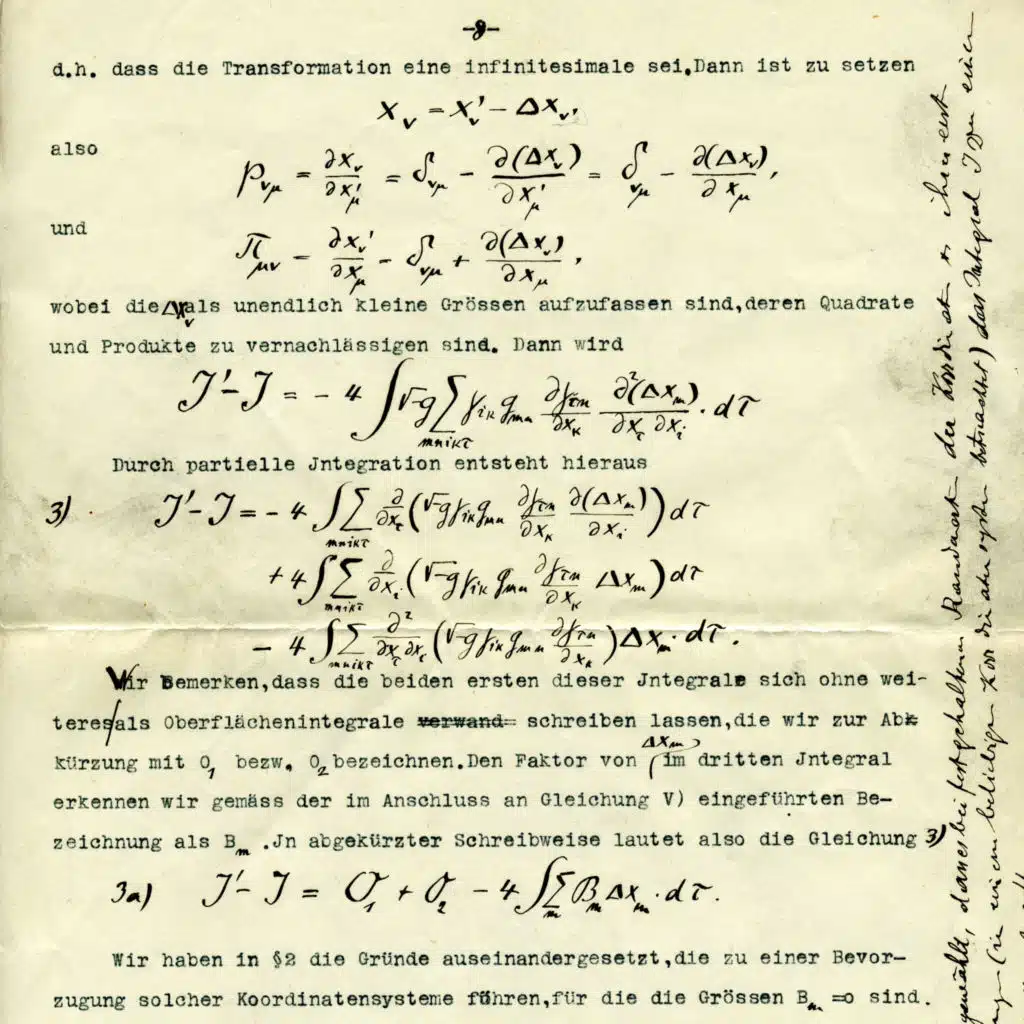 -8-
d.h. dass die Transformation eine infinitesimale sei.Dann ist zu setzen
x_ν = x'_ν − Δx_ν,
also
p_νμ = ∂x_ν/∂x'_μ = δ_νμ − ∂(Δx_ν)/∂x'_μ = δ_νμ − ∂(Δx_ν)/∂x_μ,
und
π_μν = ∂x_ν'/∂x_μ = δ_νμ + ∂(Δx_ν)/∂x_μ,
wobei die Δx_ν als unendlich kleine Grössen aufzufassen sind,deren Quadrate
und Produkte zu vernachlässigen sind. Dann wird
J' − J = − 4 ∫ √-g ∑_mnikτ γ_iκ g_mn ∂γ_τn/∂x_κ ∂²(Δx_m)/∂x_τ ∂x_i · dτ
Durch partielle Jntegration entsteht hieraus
3) J' − J = − 4 ∫ ∑_mnikτ ∂/∂x_τ (√-g γ_iκ g_mn ∂γ_τn/∂x_κ ∂(Δx_m)/∂x_i) dτ
+ 4 ∫ ∑_mnikτ ∂/∂x_i (√-g γ_iκ g_mn ∂γ_τn/∂x_κ Δx_m) dτ
− 4 ∫ ∑_mnikτ ∂²/∂x_τ ∂x_i (√-g γ_iκ g_mn ∂γ_τn/∂x_κ) Δx_m · dτ.
Wir Bemerken,dass die beiden ersten dieser Jntegrale sich ohne wei-
teres/als Oberflächenintegrale verwand= schreiben lassen,die wir zur Ab
kürzung mit O_1 bezw. O_2 bezeichnen.Den Faktor von Δx_m im dritten Jntegral
erkennen wir gemäss der im Anschluss an Gleichung V) eingeführten Be-
zeichnung als B_m .Jn abgekürzter Schreibweise lautet also die Gleichung 3)
3a) J' − J = O_1 + O_2 − 4 ∫ ∑_m B_m Δx_m · dτ.
Wir haben in §2 die Gründe auseinandergesetzt,die zu einer Bevor-
zugung solcher Koordinatensysteme führen,für die die Grössen B_m =o sind.
gewählt, dass bei festgehaltenen Randwert der Koordinaten
(in einem beliebigen Koordinatensystem betrachtet) das Integral J zu einem